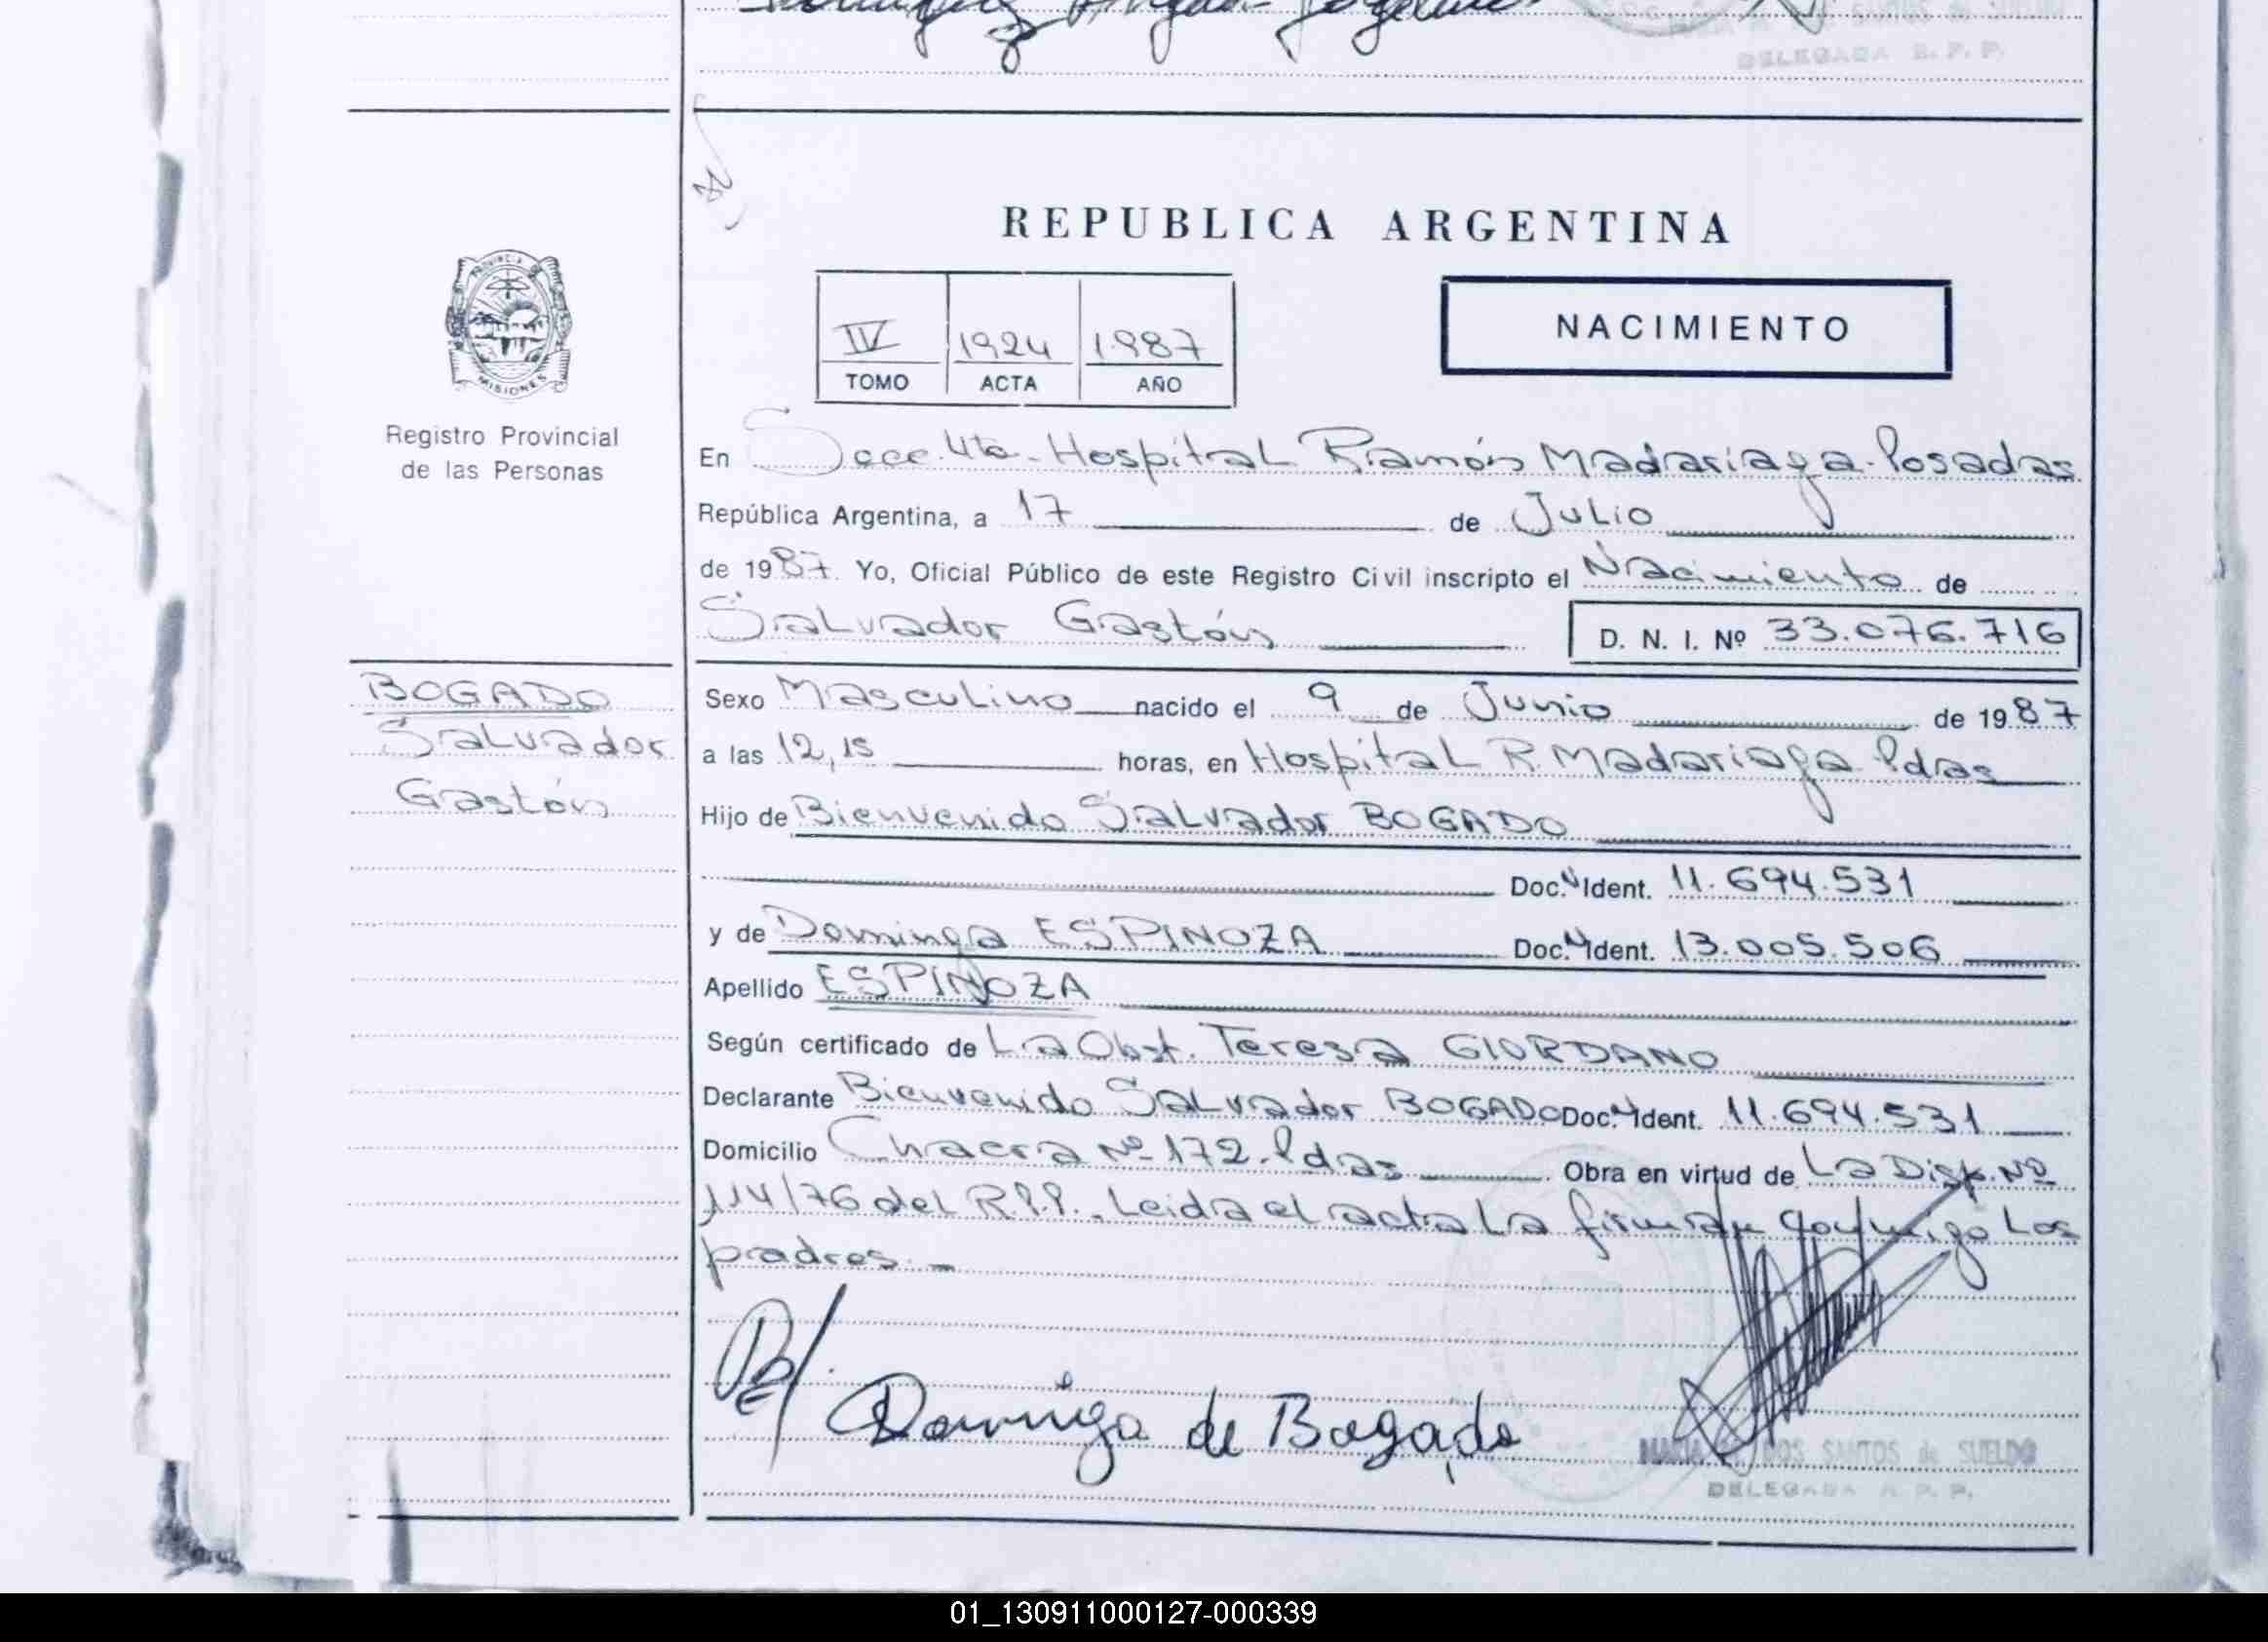 DELEGADA R. P. P.
REPUBLICA ARGENTINA
PROVINCIA DE
MISIONES
Registro Provincial
de las Personas
IV 1924 1987
TOMO ACTA AÑO
NACIMIENTO
En Secc. 4ta. Hospital Ramón Madariaga - Posadas
República Argentina, a 17 de Julio
de 1987. Yo, Oficial Público de este Registro Civil inscripto el Nacimiento de
Salvador Gastón D. N. I. Nº 33.076.716
BOGADO
Salvador
Gastón
Sexo Masculino nacido el 9 de Junio de 1987
a las 12,15 horas, en Hospital R. Madariaga Pdas
Hijo de Bienvenido Salvador BOGADO
Doc. Ident. 11.694.531
y de Dominga ESPINOZA Doc. Ident. 13.005.506
Apellido ESPINOZA
Según certificado de La Obst. Teresa GIORDANO
Declarante Bienvenido Salvador BOGADO Doc. Ident. 11.694.531
Domicilio Chacra Nº 172. Pdas Obra en virtud de La Disp. Nº
114/76 del R.P.P. Leida el acta La firman conmigo Los
padres. -
Dominga de Bogado
DOS SANTOS de SUELDO
DELEGADA R. P. P.
01_130911000127-000339